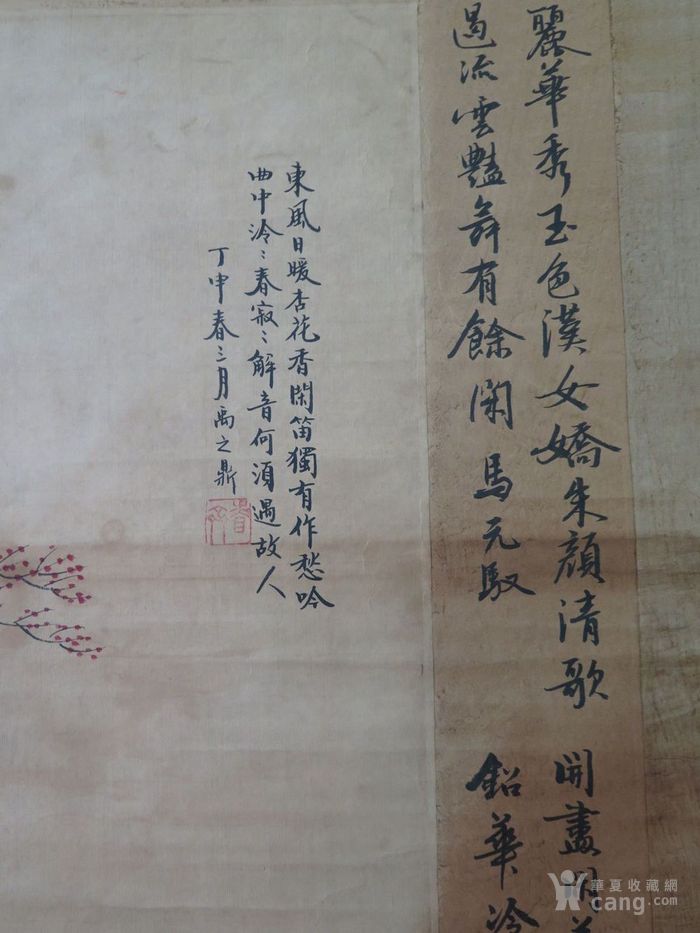 麗華秀玉色漢女嬌朱顏清歌
遏流雲艷舞有餘閑 馬元馭
開畫
鉛華冷
東風日暖杏花香閑笛獨有作愁吟
曲中泠〻春寂〻解音何須遇故人
丁申春三月禹之鼎
華夏收藏網
cang.com